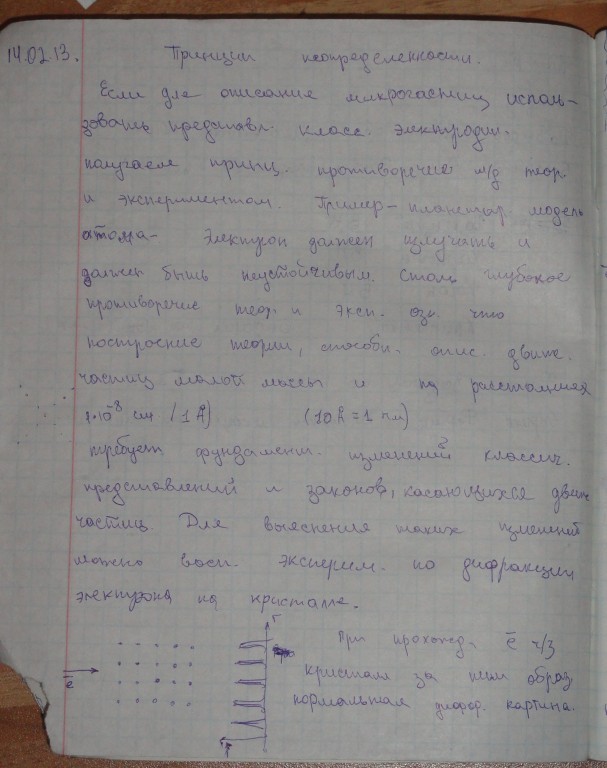 14.02 13. Принцип неопределенности.
Если для описание микрочастиц исполь-
зовать представл. класс. электродин.
получаем принц. противоречие м/д теор
и экспериментом. Пример – планетар. модель
атома – Электрон должен излучать и
должен быть неустойчивым. Столь глубокое
противоречие теор. и эксп. озн. что
построение теории, способн. опис. движ.
частиц малой массы и на расстоянях
1·10⁻⁸ см (1 Å) (10 Å = 1 нм)
требует фундамент. изменений классич.
представлений и законов, касающихся движ
частиц. Для выяснения таких изменений
можно восп. эксперим. по дифракции
электрона на кристалле.
При прохожд. ē ч/з
кристалл за ним образ.
нормальная дифр. картина.
ē